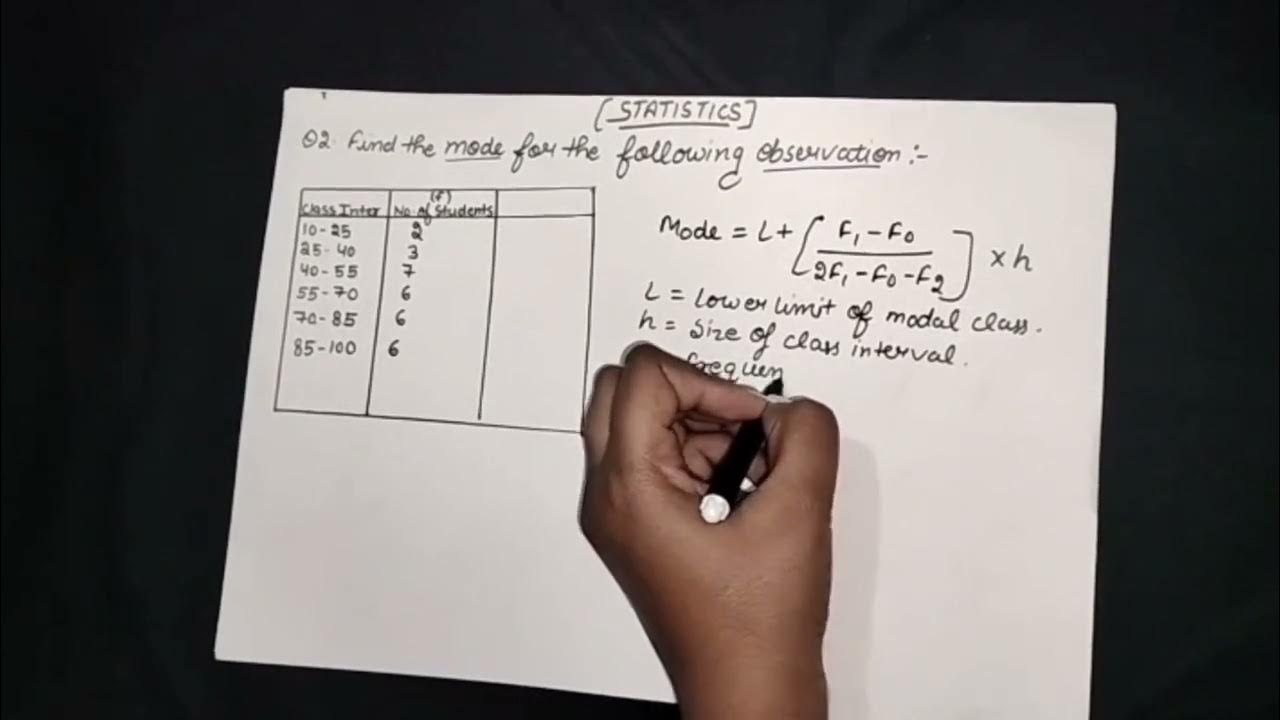 [STATISTICS]
Q2. Find the mode for the following observation :-
(f)
Class Inter | No. of Students
10-25 2
25-40 3
40-55 7
55-70 6
70-85 6
85-100 6
Mode = L + [ F₁ - F₀ / 2F₁ - F₀ - F₂ ] × h
L = Lower limit of modal class.
h = Size of class interval.
frequen